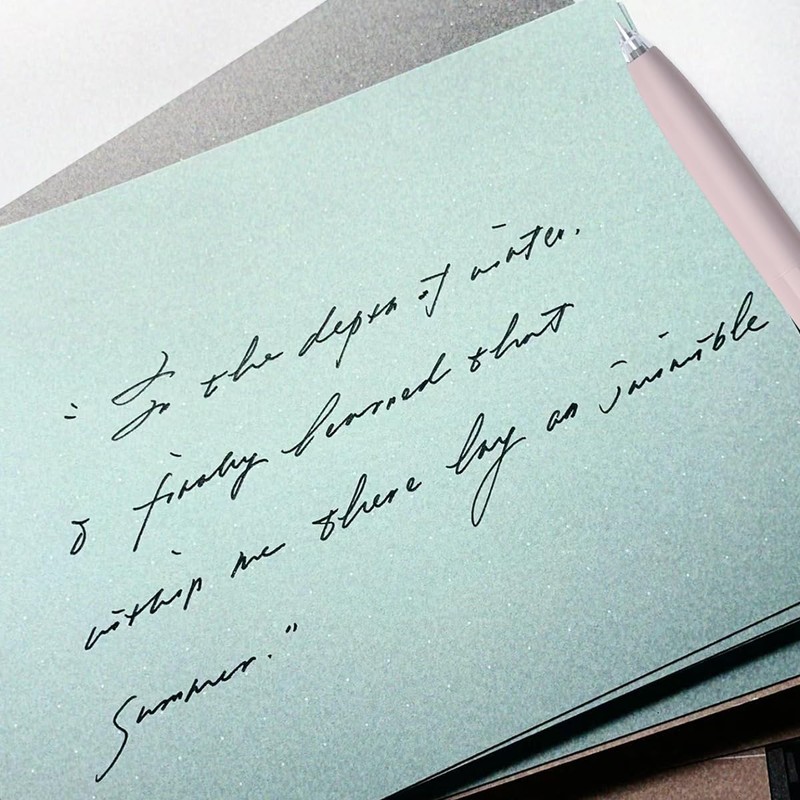 "In the depth of winter.
I finally learned that
within me there lay an invincible
Summer."